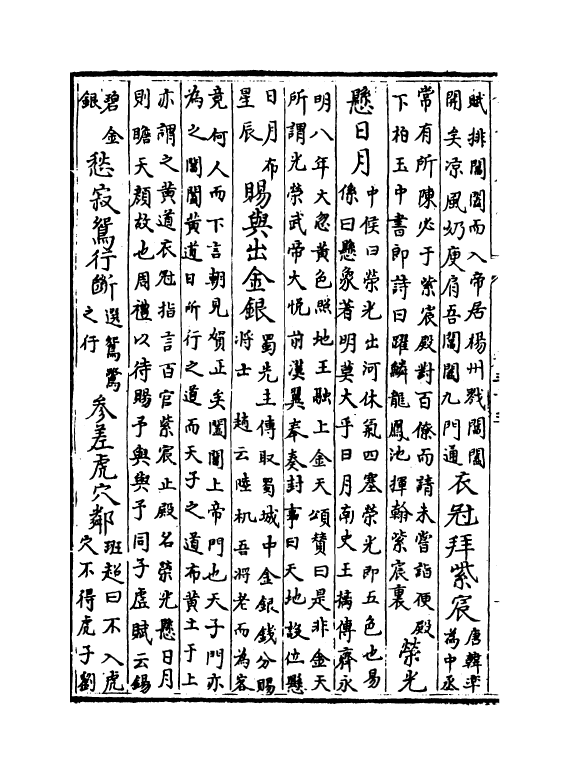 賦排閶闔而入帝居楊州戮閶闔
開矣凉風奶庾肩吾閶闔九門通
衣冠拜紫宸
唐韓滜
為中丞
常有所陳必于紫宸殿對百僚而請未嘗詣便殿
下柏玉中書即詩曰躍鱗龍鳳池揮翰紫宸裏
榮光
懸日月
中侯曰榮光出河休氣四塞榮光即五色也易
係曰懸象著明莫大乎日月南史王摛傳齊永
明八年大忽黄色照地王融上金天頌贊曰是非金天
所謂光榮武帝大悦前漢翼奉奏封事曰天地設位懸
日月布
星辰
賜與出金銀
蜀先主傳取蜀城中金銀錢分賜
將士 趙云陸机吾將老而為客
竟何人而下言朝見賀正矣閶闔上帝門也天子門亦
為之閶闔黄道日所行之道而天子之道布黄土于上
亦謂之黄道衣冠指言百官紫宸正殿名榮光懸日月
則瞻天顔故也周禮以待賜予與與予同子虚賦云錫
碧金
銀
愁寂鴛行斷
選鴛鷺
之行
參差虎穴鄰
班超曰不入虎
穴不得虎子劉